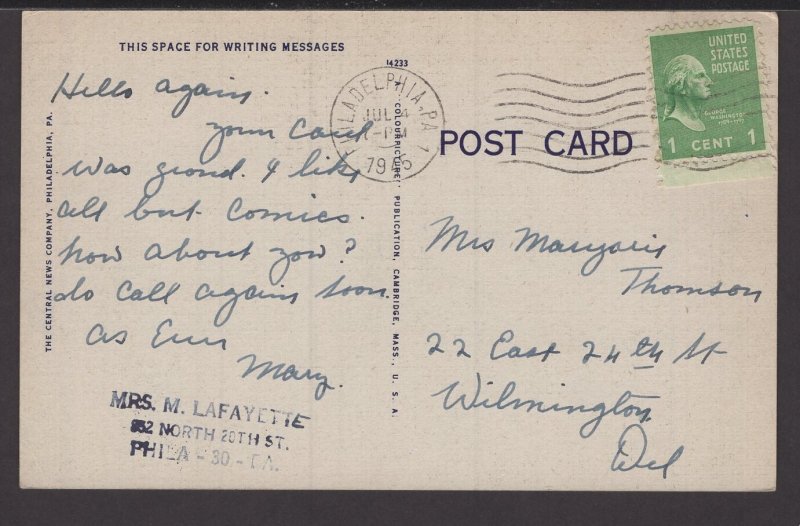 THIS SPACE FOR WRITING MESSAGES
Hello again.
your card
was grand. I like
all but comics.
how about you?
do call again soon.
as Ever
Mary.
MRS. M. LAFAYETTE
852 NORTH 20TH ST.
PHILA - 30 - PA.
THE CENTRAL NEWS COMPANY, PHILADELPHIA, PA.
14233
"COLOURPICTURE" PUBLICATION, CAMBRIDGE, MASS., U. S. A.
PHILADELPHIA, PA
JUL
PM
POST CARD
UNITED
STATES
POSTAGE
GEORGE
WASHINGTON
1 CENT 1
Mrs Marjorie
Thomson
22 East 24th St
Wilmington
Del